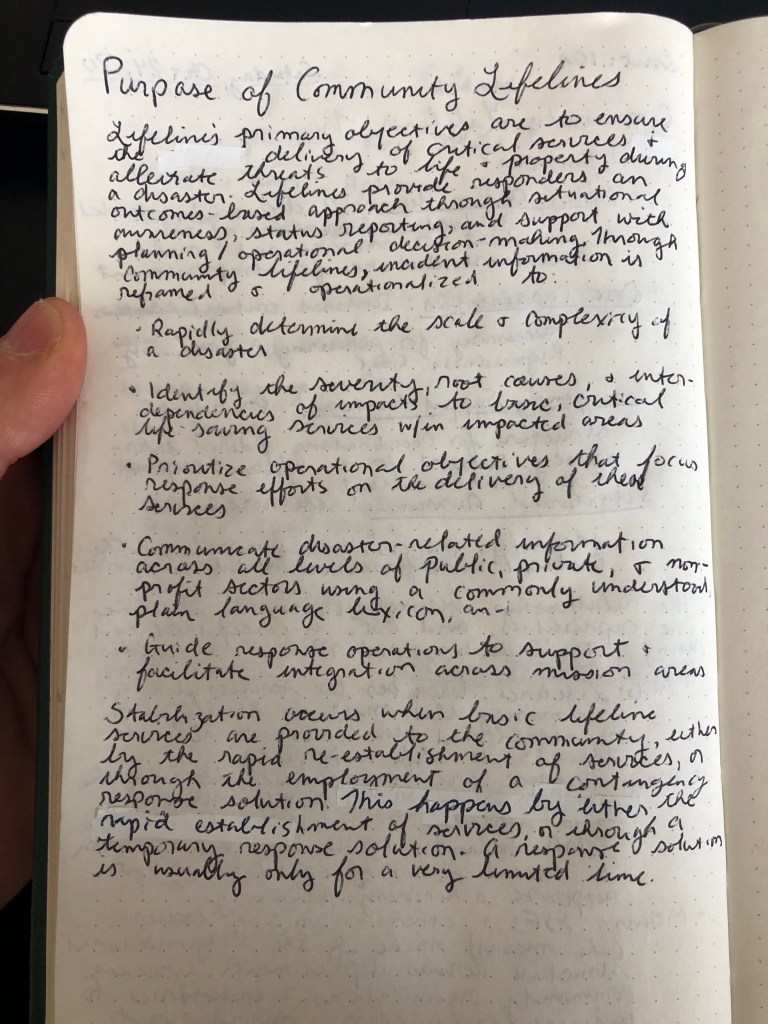 Purpose of Community Lifelines
Lifelines primary objectives are to ensure
the delivery of critical services &
alleviate threats to life & property during
a disaster. Lifelines provide responders an
outcomes-based approach through situational
awareness, status reporting, and support with
planning / operational decision-making. Through
Community lifelines, incident information is
reframed & operationalized to:
• Rapidly determine the scale & complexity of
a disaster
• Identify the severity, root causes, & inter-
dependencies of impacts to basic, critical
life-saving services w/in impacted areas
• Prioritize operational objectives that focus
response efforts on the delivery of these
services
• Communicate disaster-related information
across all levels of public, private, & non-
profit sectors using a commonly understood,
plain language lexicon, an-
• Guide response operations to support &
facilitate integration across mission areas
Stabilization occurs when basic lifeline
services are provided to the community, either
by the rapid re-establishment of services, or
through the employment of a contingency
response solution. This happens by either the
rapid establishment of services, or through a
temporary response solution. A response solution
is usually only for a very limited time.